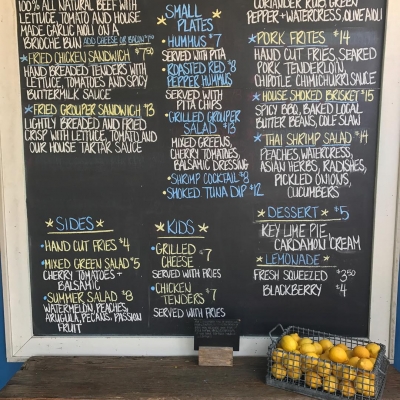 100% ALL NATURAL BEEF WITH
LETTUCE, TOMATO AND HOUSE
MADE GARLIC AIOLI ON A
BRIOCHE BUN ADD CHEESE OR BACON $1
FRIED CHICKEN SANDWICH $7.50
HAND BREADED TENDERS WITH
LETTUCE, TOMATOES, AND SPICY
BUTTERMILK SAUCE
FRIED GROUPER SANDWICH $13
LIGHTLY BREADED AND FRIED
CRISP WITH LETTUCE, TOMATO, AND
OUR HOUSE TARTAR SAUCE
SIDES
HAND CUT FRIES $4
MIXED GREEN SALAD $5
CHERRY TOMATOES +
BALSAMIC
SUMMER SALAD $8
WATERMELON, PEACHES,
ARUGULA, PECANS, PASSION
FRUIT
SMALL
PLATES
HUMMUS $7
SERVED WITH PITA
ROASTED RED $8
PEPPER HUMMUS
SERVED WITH
PITA CHIPS
GRILLED GROUPER
SALAD $13
MIXED GREENS,
CHERRY TOMATOES,
BALSAMIC DRESSING
SHRIMP COCKTAIL $8
SMOKED TUNA DIP $12
KIDS
GRILLED
CHEESE $7
SERVED WITH FRIES
CHICKEN
TENDERS $7
SERVED WITH FRIES
CORIANDER RUB, GREEN
PEPPER + WATERCRESS, OLIVE AIOLI
PORK FRITES $14
HAND CUT FRIES, SEARED
PORK TENDERLOIN,
CHIPOTLE CHIMICHURRI SAUCE
HOUSE SMOKED BRISKET $15
SPICY BBQ, BAKED LOCAL
BUTTER BEANS, COLE SLAW
THAI SHRIMP SALAD $14
PEACHES, WATERCRESS,
ASIAN HERBS, RADISHES,
PICKLED ONIONS,
CUCUMBERS
DESSERT $5
KEY LIME PIE,
CARDAMOM CREAM
LEMONADE
FRESH SQUEEZED $3.50
BLACKBERRY $4